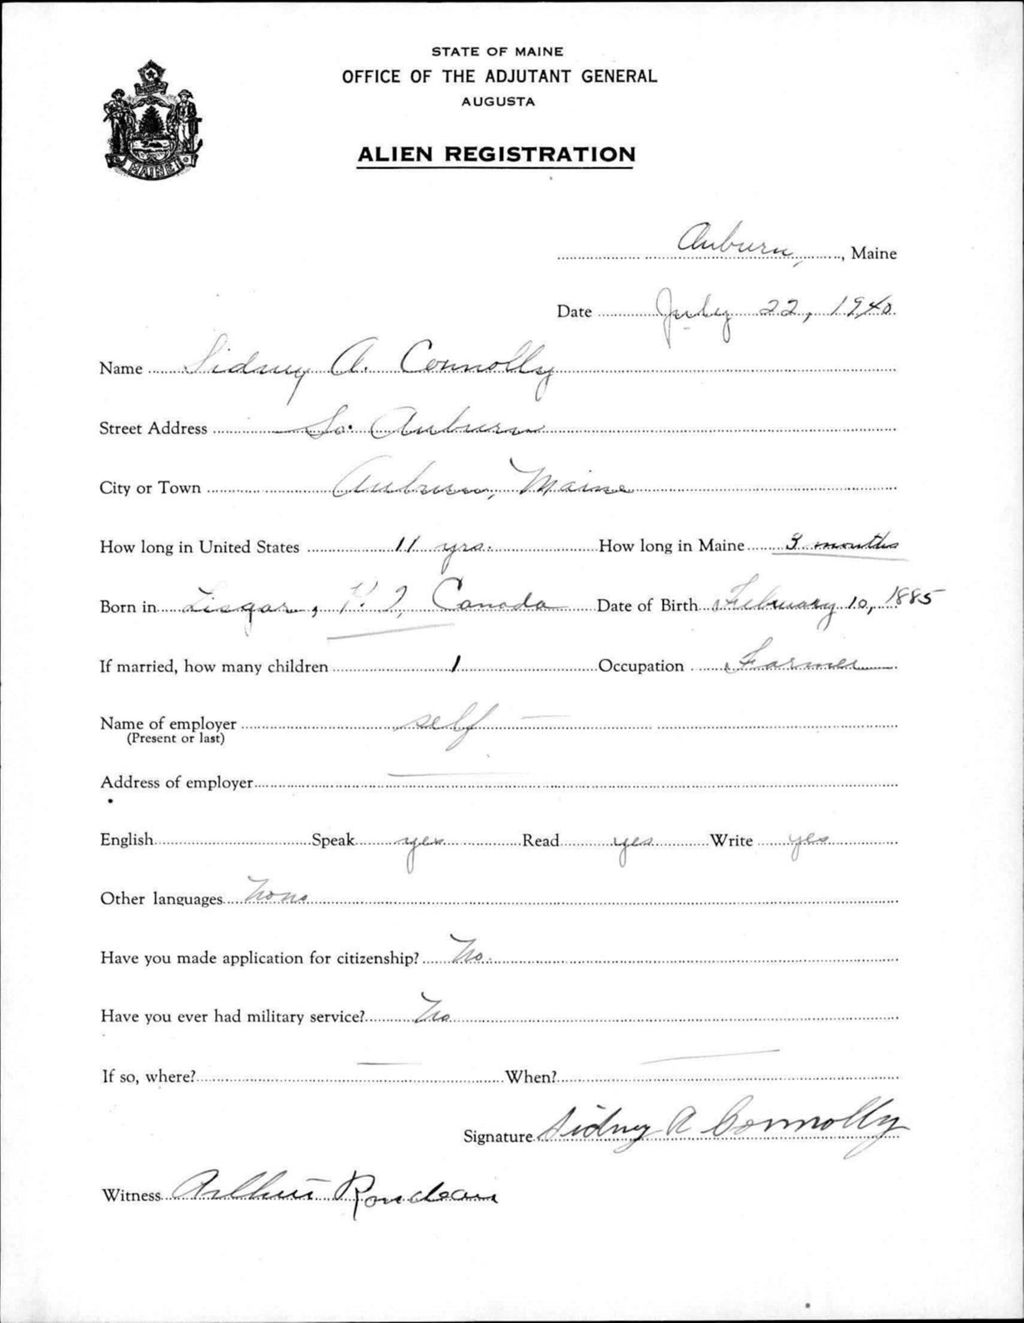 STATE OF MAINE
OFFICE OF THE ADJUTANT GENERAL
AUGUSTA
ALIEN REGISTRATION
MAINE
Auburn, , Maine
Date July 22, 1940
Name Sidney A. Connolly
Street Address So. Auburn
City or Town Auburn, Maine
How long in United States 11 yrs. How long in Maine 3 months
Born in Lisgar, Canada Date of Birth February 10, 1885
If married, how many children 1 Occupation Farmer
Name of employer self —
(Present or last)
Address of employer —
English Speak yes Read yes Write yes
Other languages None
Have you made application for citizenship? No.
Have you ever had military service? No
If so, where? — When? —
Signature Sidney A Connolly
Witness Arthur Rondeau